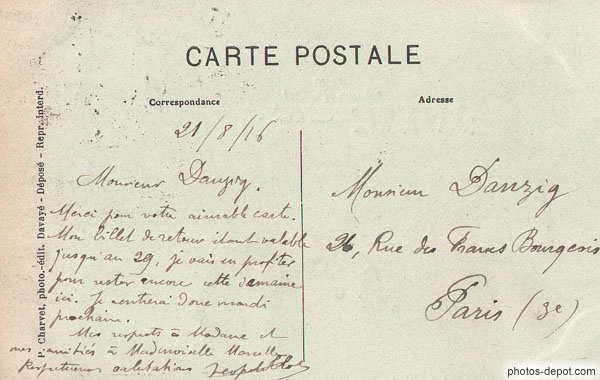 CARTE POSTALE
Correspondance
Adresse
P. Charvet, photo.-édit. Davayé - Déposé - Repr. interd.
21/8/16
Monsieur Danzig,
Merci pour votre aimable carte.
Mon billet de retour étant valable
jusqu'au 29, je vais en profiter
pour rester encore cette semaine
ici. Je rentrerai donc mardi
prochain.
Mes respects à Madame et
mes amitiés à Mademoiselle Marcelle
Respectueuses salutations
Monsieur Danzig
26, Rue des Francs Bourgeois
Paris (3e)
photos-depot.com